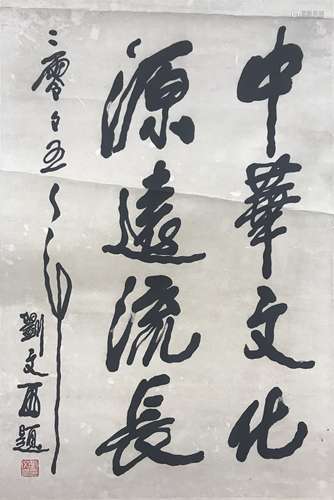 中華文化
源遠流長
二零五年
劉文西題